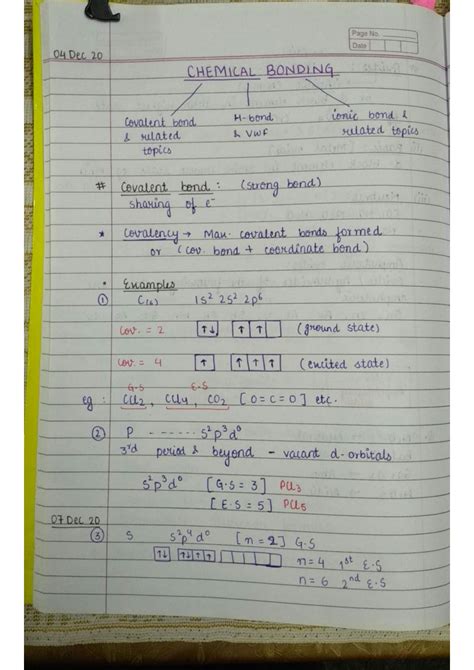 Page No.
Date
04 Dec 20
CHEMICAL BONDING
Covalent bond & related topics
H-bond & VWF
ionic bond & related topics
# Covalent bond : (strong bond)
sharing of e⁻
* Covalency → Max. covalent bonds formed
or (cov. bond + coordinate bond)
• Examples
① C(6) 1s² 2s² 2p⁶
Cov. = 2 ↑↓ ↑ ↑ (ground state)
Cov. = 4 ↑ ↑ ↑ ↑ (excited state)
G.S E.S
eg : CCl₂, CCl₄, CO₂ [O=C=O] etc.
② P ------ s²p³d⁰
3rd period & beyond - vacant d-orbitals
s²p³d⁰ [G.S = 3] PCl₃
[E.S = 5] PCl₅
07 Dec 20
③ S s²p⁴d⁰ [n = 2] G.S
↑↓ ↑↓ ↑ ↑ n=4 1st E.S
n=6 2nd E.S